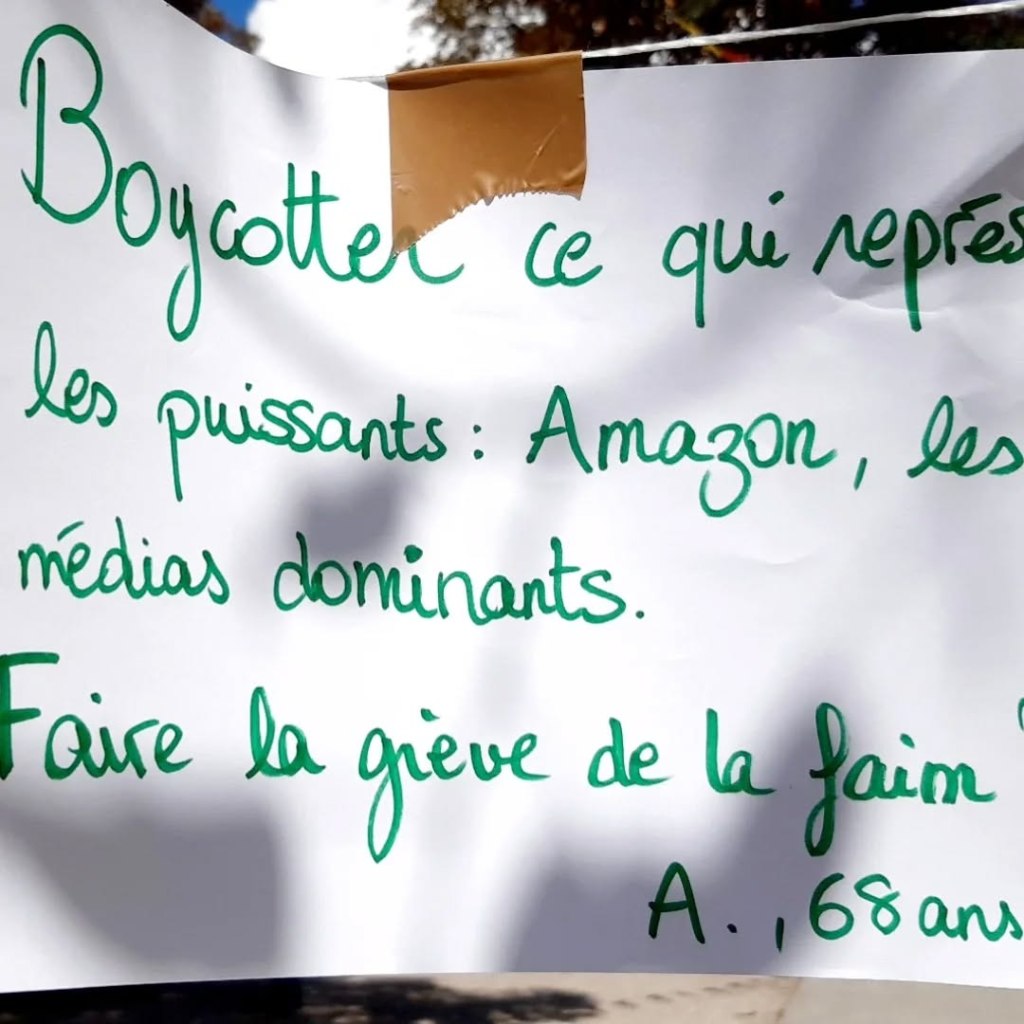 Boycotter ce qui représ
les puissants : Amazon, les
médias dominants.
Faire la grève de la faim ?
A., 68 ans